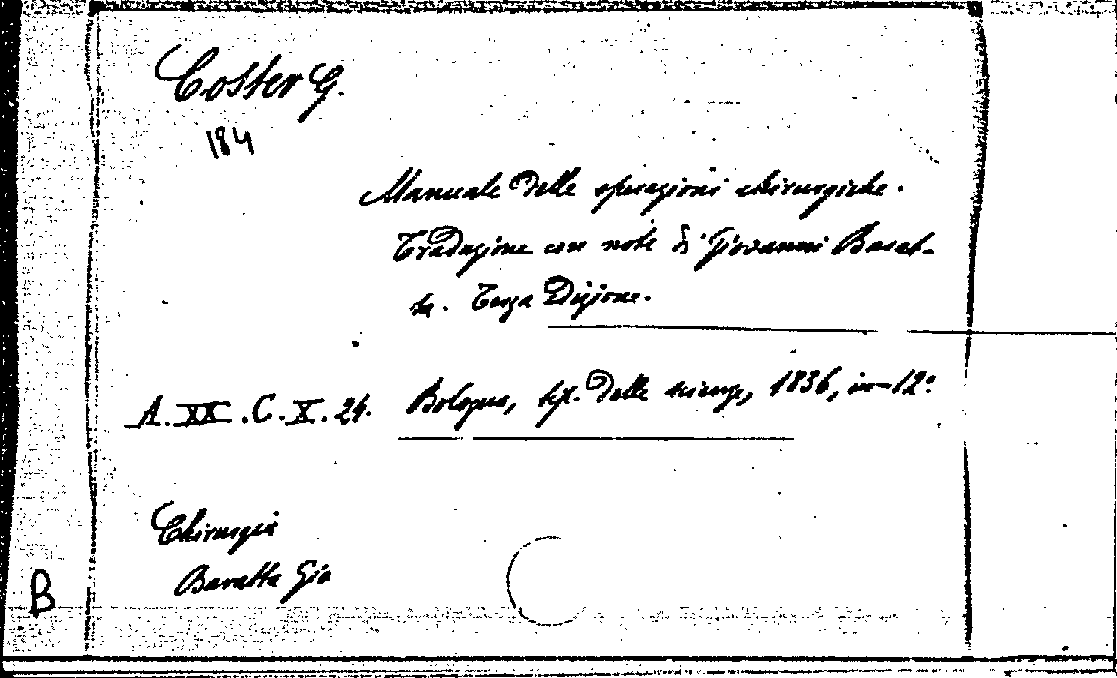 Coster G.
184
Manuale delle operazioni chirurgiche.
Traduzione con note di Giovanni Barat-
ta. Terza Edizione.
A. XX. C. X. 24. Bologna, tip. delle scienze, 1836, in-12°
Chirurgia
Baratta Gio
B